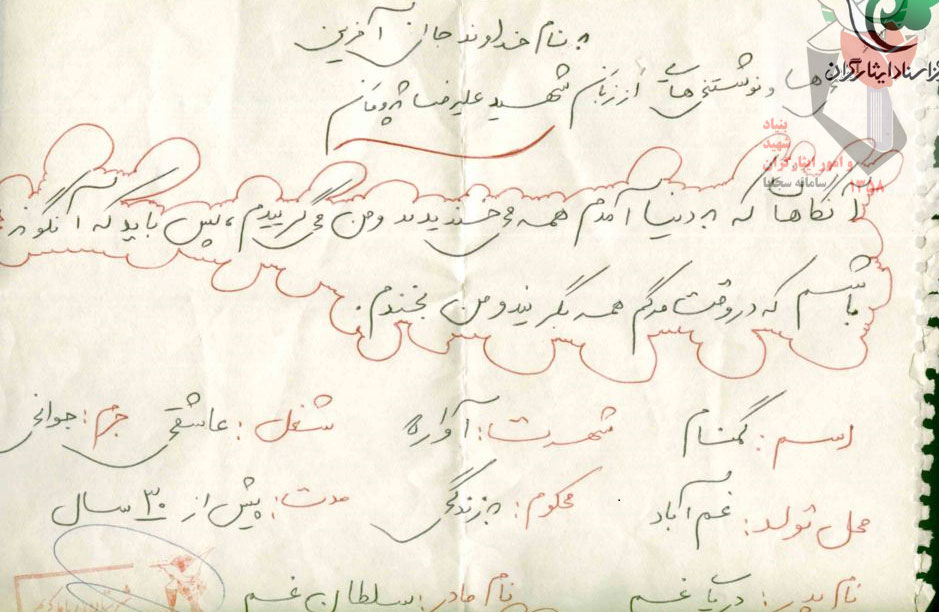 بنام خداوند جان آفرین
ها و نوشتنی هایی از زبان شهید علیرضا پژومان
آنگاها که بدنیا آمدم همه می خندیدند و من می گرییدم، پس باید که آنگونه
باشم که در وقت مرگم همه بگریند و من بخندم.
اسم: گمنام شهرت: آواره شغل: عاشقی جرم: جوانی
محل تولد: غم آباد محکوم: بزندگی مدت: بیش از ۳۰ سال
نام پدر: دریا غم نام مادر: سلطان غم
اسناد ایثارگران
بنیاد
شهید
و امور ایثارگران
سامانه سجایا
۱۳۵۸